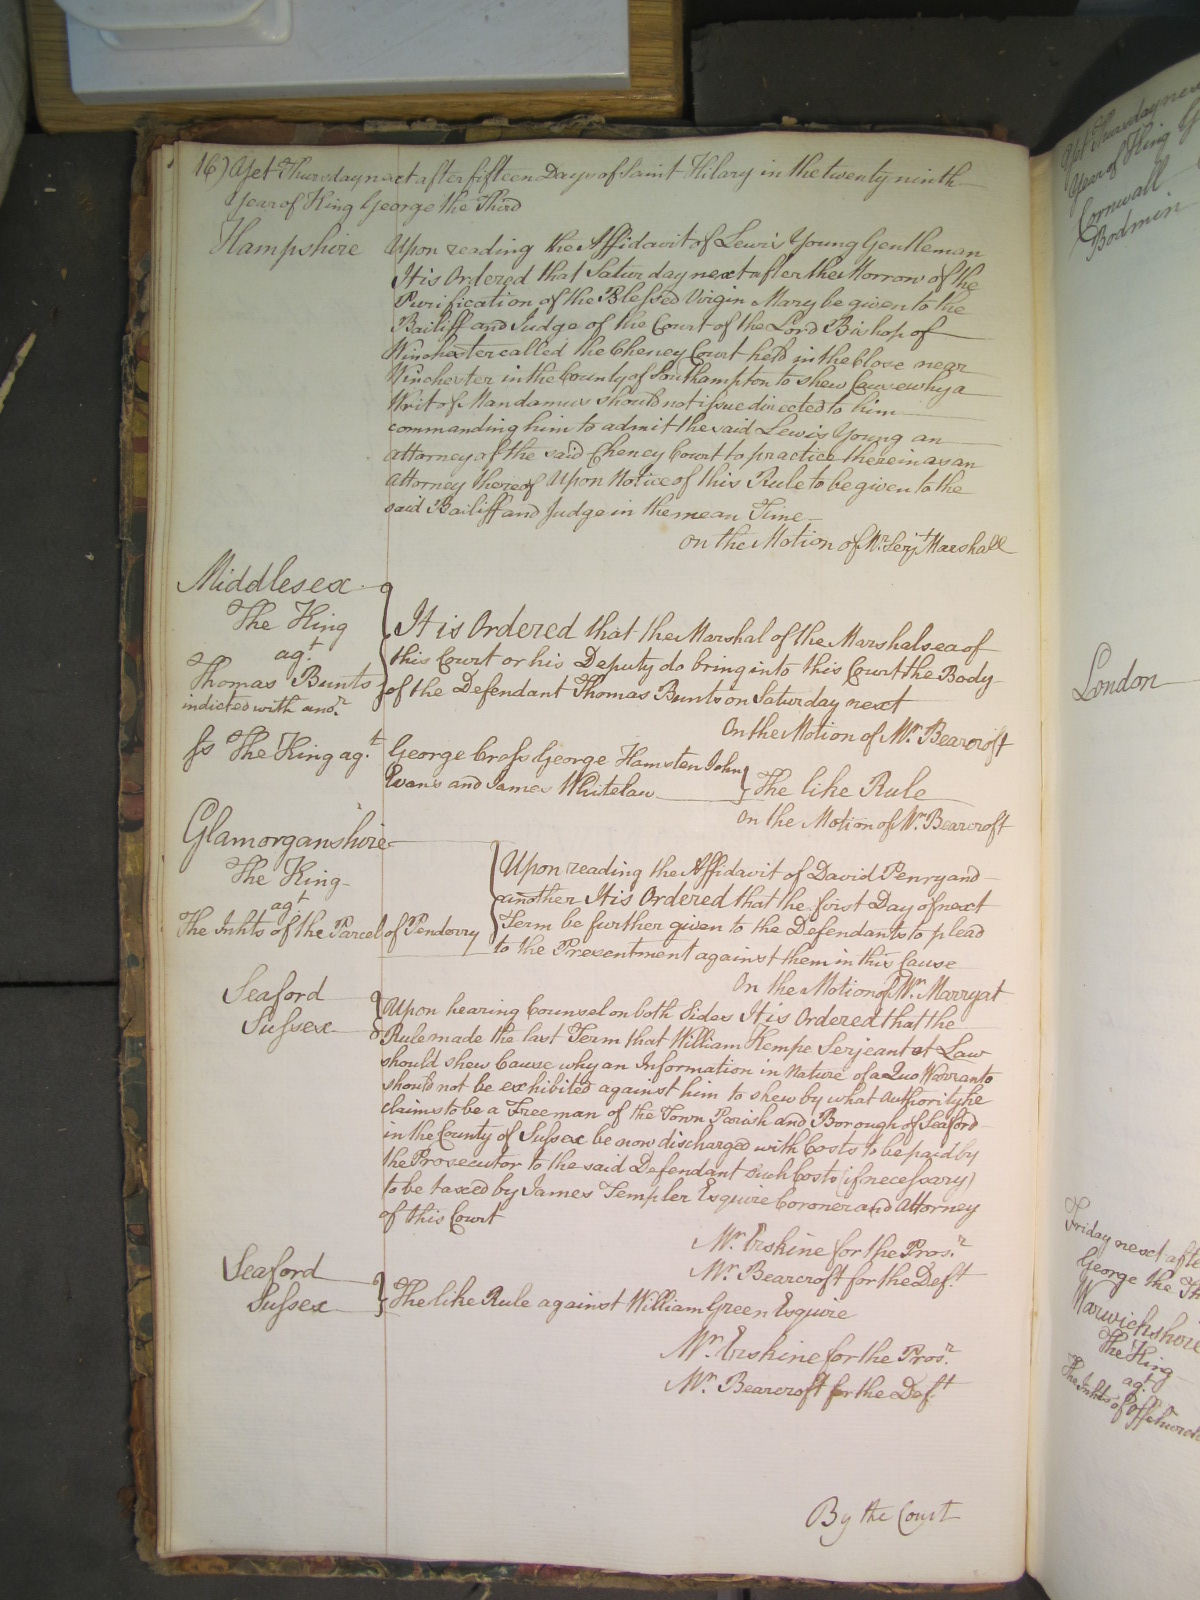 16) Yet Thursday next after fifteen Days of Saint Hilary in the twenty ninth
Year of King George the Third
Hampshire
Upon reading the Affidavit of Lewis Young Gentleman
It is Ordered that Saturday next after the Morrow of the
Purification of the Blessed Virgin Mary be given to the
Bailiff and Judge of the Court of the Lord Bishop of
Winchester called the Cheney Court held in the Close near
Winchester in the County of Southampton to shew Cause why a
Writ of Mandamus should not issue directed to him
commanding him to admit the said Lewis Young an
attorney of the said Cheney Court to practice therein as an
attorney thereof Upon Notice of this Rule to be given to the
said Bailiff and Judge in the mean Time
On the Motion of Mr. Serjt Marshall
Middlesex
The King
agt.
Thomas Bunts
indicted with anor.
It is Ordered that the Marshal of the Marshalsea of
this Court or his Deputy do bring into this Court the Body
of the Defendant Thomas Bunts on Saturday next
On the Motion of Mr. Bearcroft
Ss The King agt.
George Cross George Hamsten John
Evans and James Whitelaw
The like Rule
On the Motion of Mr. Bearcroft
Glamorganshire
The King
agt
The Inhts of the Parcel of Penderry
Upon reading the Affidavit of David Penry and
another It is Ordered that the first Day of next
Term be further given to the Defendants to plead
to the Presentment against them in this Cause
On the Motion of Mr. Marryat
Seaford
Sussex
Upon hearing Counsel on both Sides It is Ordered that the
Rule made the last Term that William Kempe Serjeant at Law
should shew Cause why an Information in Nature of a Quo Warranto
should not be exhibited against him to shew by what Authority he
claims to be a Freeman of the Town Parish and Borough of Seaford
in the County of Sussex be now discharged with Costs to be paid by
the Prosecutor to the said Defendant such Costs (if necessary)
to be taxed by James Templer Esquire Coroner and Attorney
of this Court
Mr. Erskine for the Prosr.
Mr. Bearcroft for the Deft
Seaford
Sussex
The like Rule against William Green Esquire
Mr. Erskine for the Prosr.
Mr. Bearcroft for the Deft.
By the Court
Yet Thursday next
Year of King G
Cornwall
Bodmin
London
Friday next afte
George the Th
Warwickshire
The King
agt.
The Inhts of